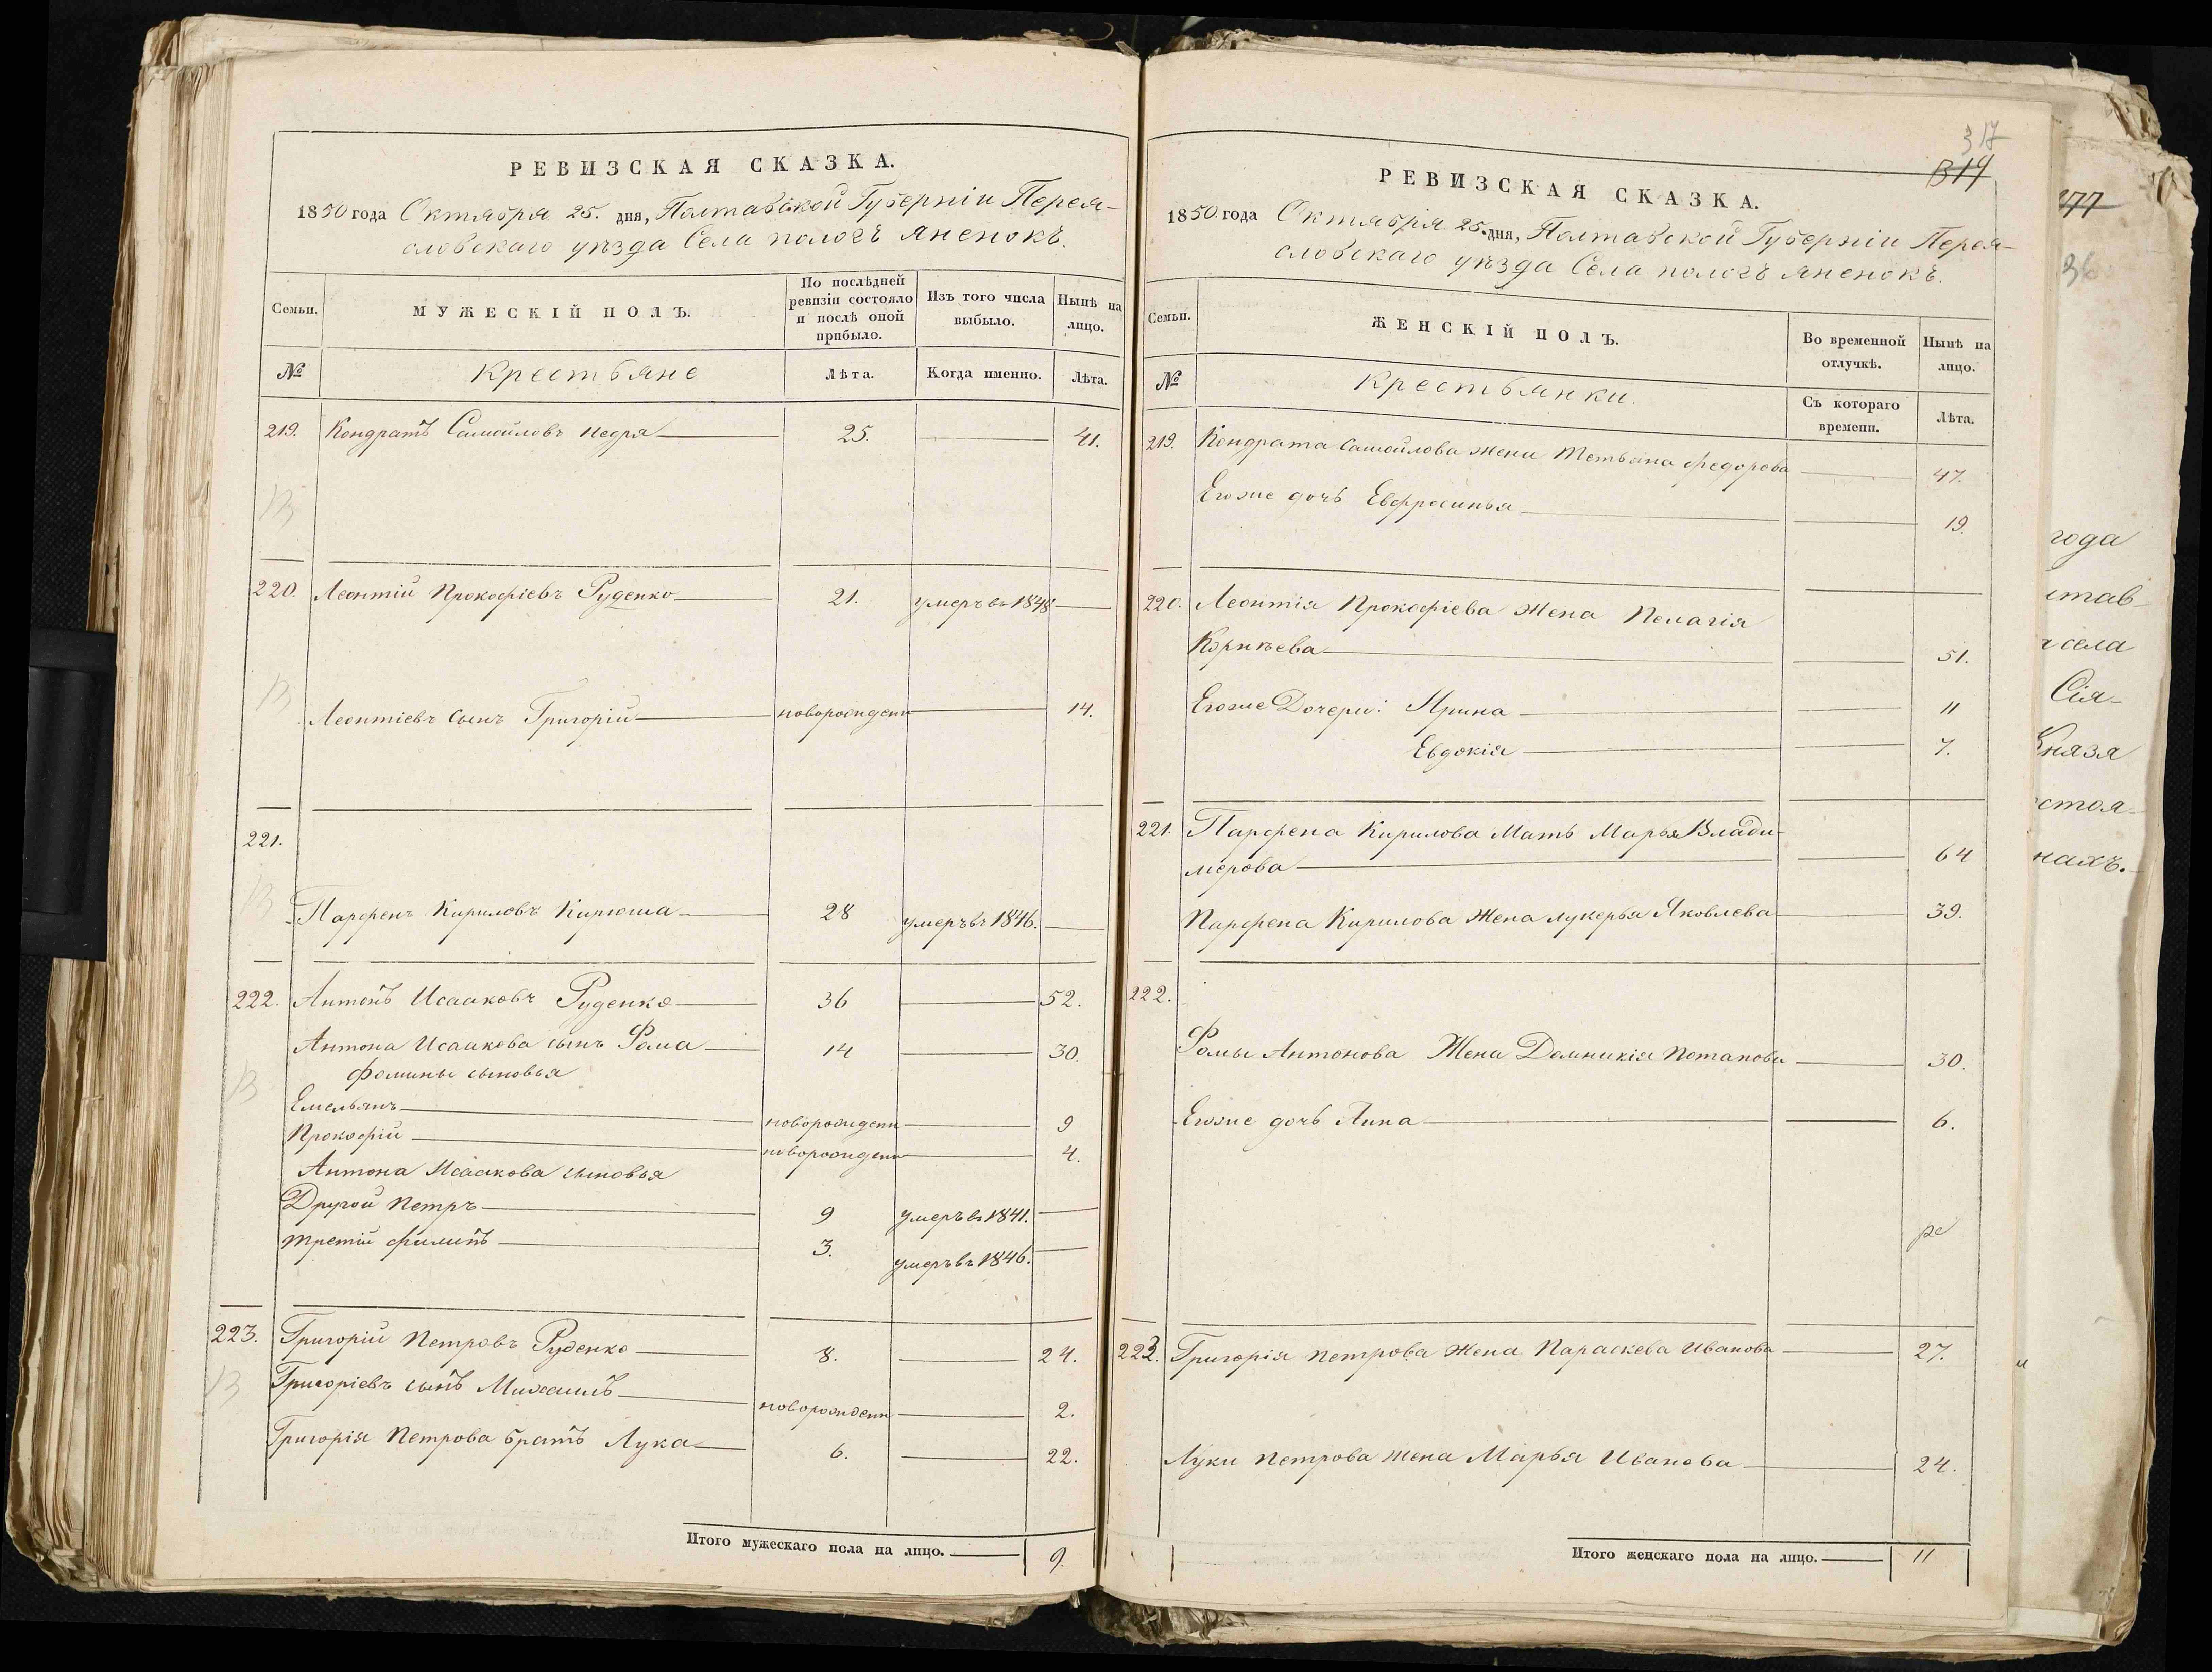 РЕВИЗСКАЯ СКАЗКА.
1850 года Октября 25. дня, Полтавской Губерніи Перея-
словскаго уѣзда Села пологъ яненокъ.
Семьи.
МУЖЕСКІЙ ПОЛЪ.
По послѣдней
ревизіи состояло
и послѣ оной
прибыло.
Изъ того числа
выбыло.
Нынѣ на
лицо.
№
Крестьяне
Лѣта.
Когда именно.
Лѣта.
219. Кондратъ Самойловъ Недря 25. 41.
220. Леонтій Прокофіевъ Руденко 21. умеръ въ 1848
Леонтіевъ сынъ Григорій новорожденн 14.
221.
Парфенъ Кириловъ Кирюша 28 умеръ въ 1846.
222. Антонъ Исааковъ Руденко 36 52.
Антона Исаакова сынъ Фома 14 30.
Фомины сыновья
Емельянъ новорожденн 9
Прокофій новорожденн 4.
Антона Исаакова сыновья
Другой Петръ 9 умеръ въ 1841.
третій Филипъ 3. умеръ въ 1846.
223. Григорій Петровъ Руденко 8. 24.
Григоріевъ сынъ Михаилъ новорожденн 2.
Григорія Петрова братъ Лука 6. 22.
Итого мужескаго пола на лицо. 9.
317
314
РЕВИЗСКАЯ СКАЗКА.
1850 года Октября 25. дня, Полтавской Губерніи Перея-
словскаго уѣзда Села пологъ яненокъ.
Семьи.
ЖЕНСКІЙ ПОЛЪ.
Во временной
отлучкѣ.
Нынѣ на
лицо.
№
Крестьянки.
Съ котораго
времени.
Лѣта.
219. Кондрата Самойлова жена Тетьяна Федорова 47.
Егоже дочь Евфросинья 19.
220. Леонтія Прокофіева жена Пелагія
Корнѣева 51.
Егоже Дочери: Ярина 11
Евдокія 7.
221. Парфена Кирилова Мать Марья Влади-
мерова 64
Парфена Кирилова Жена Лукерья Яковлева 39.
222.
Фомы Антонова Жена Домникія Потапова 30.
Егоже дочь Анна 6.
223. Григорія Петрова Жена Параскева Иванова 27.
Луки Петрова жена Марья Иванова 24.
Итого женскаго пола на лицо. 11
277
36
года
став
села
Сія-
Князя
стоя-
нахъ.